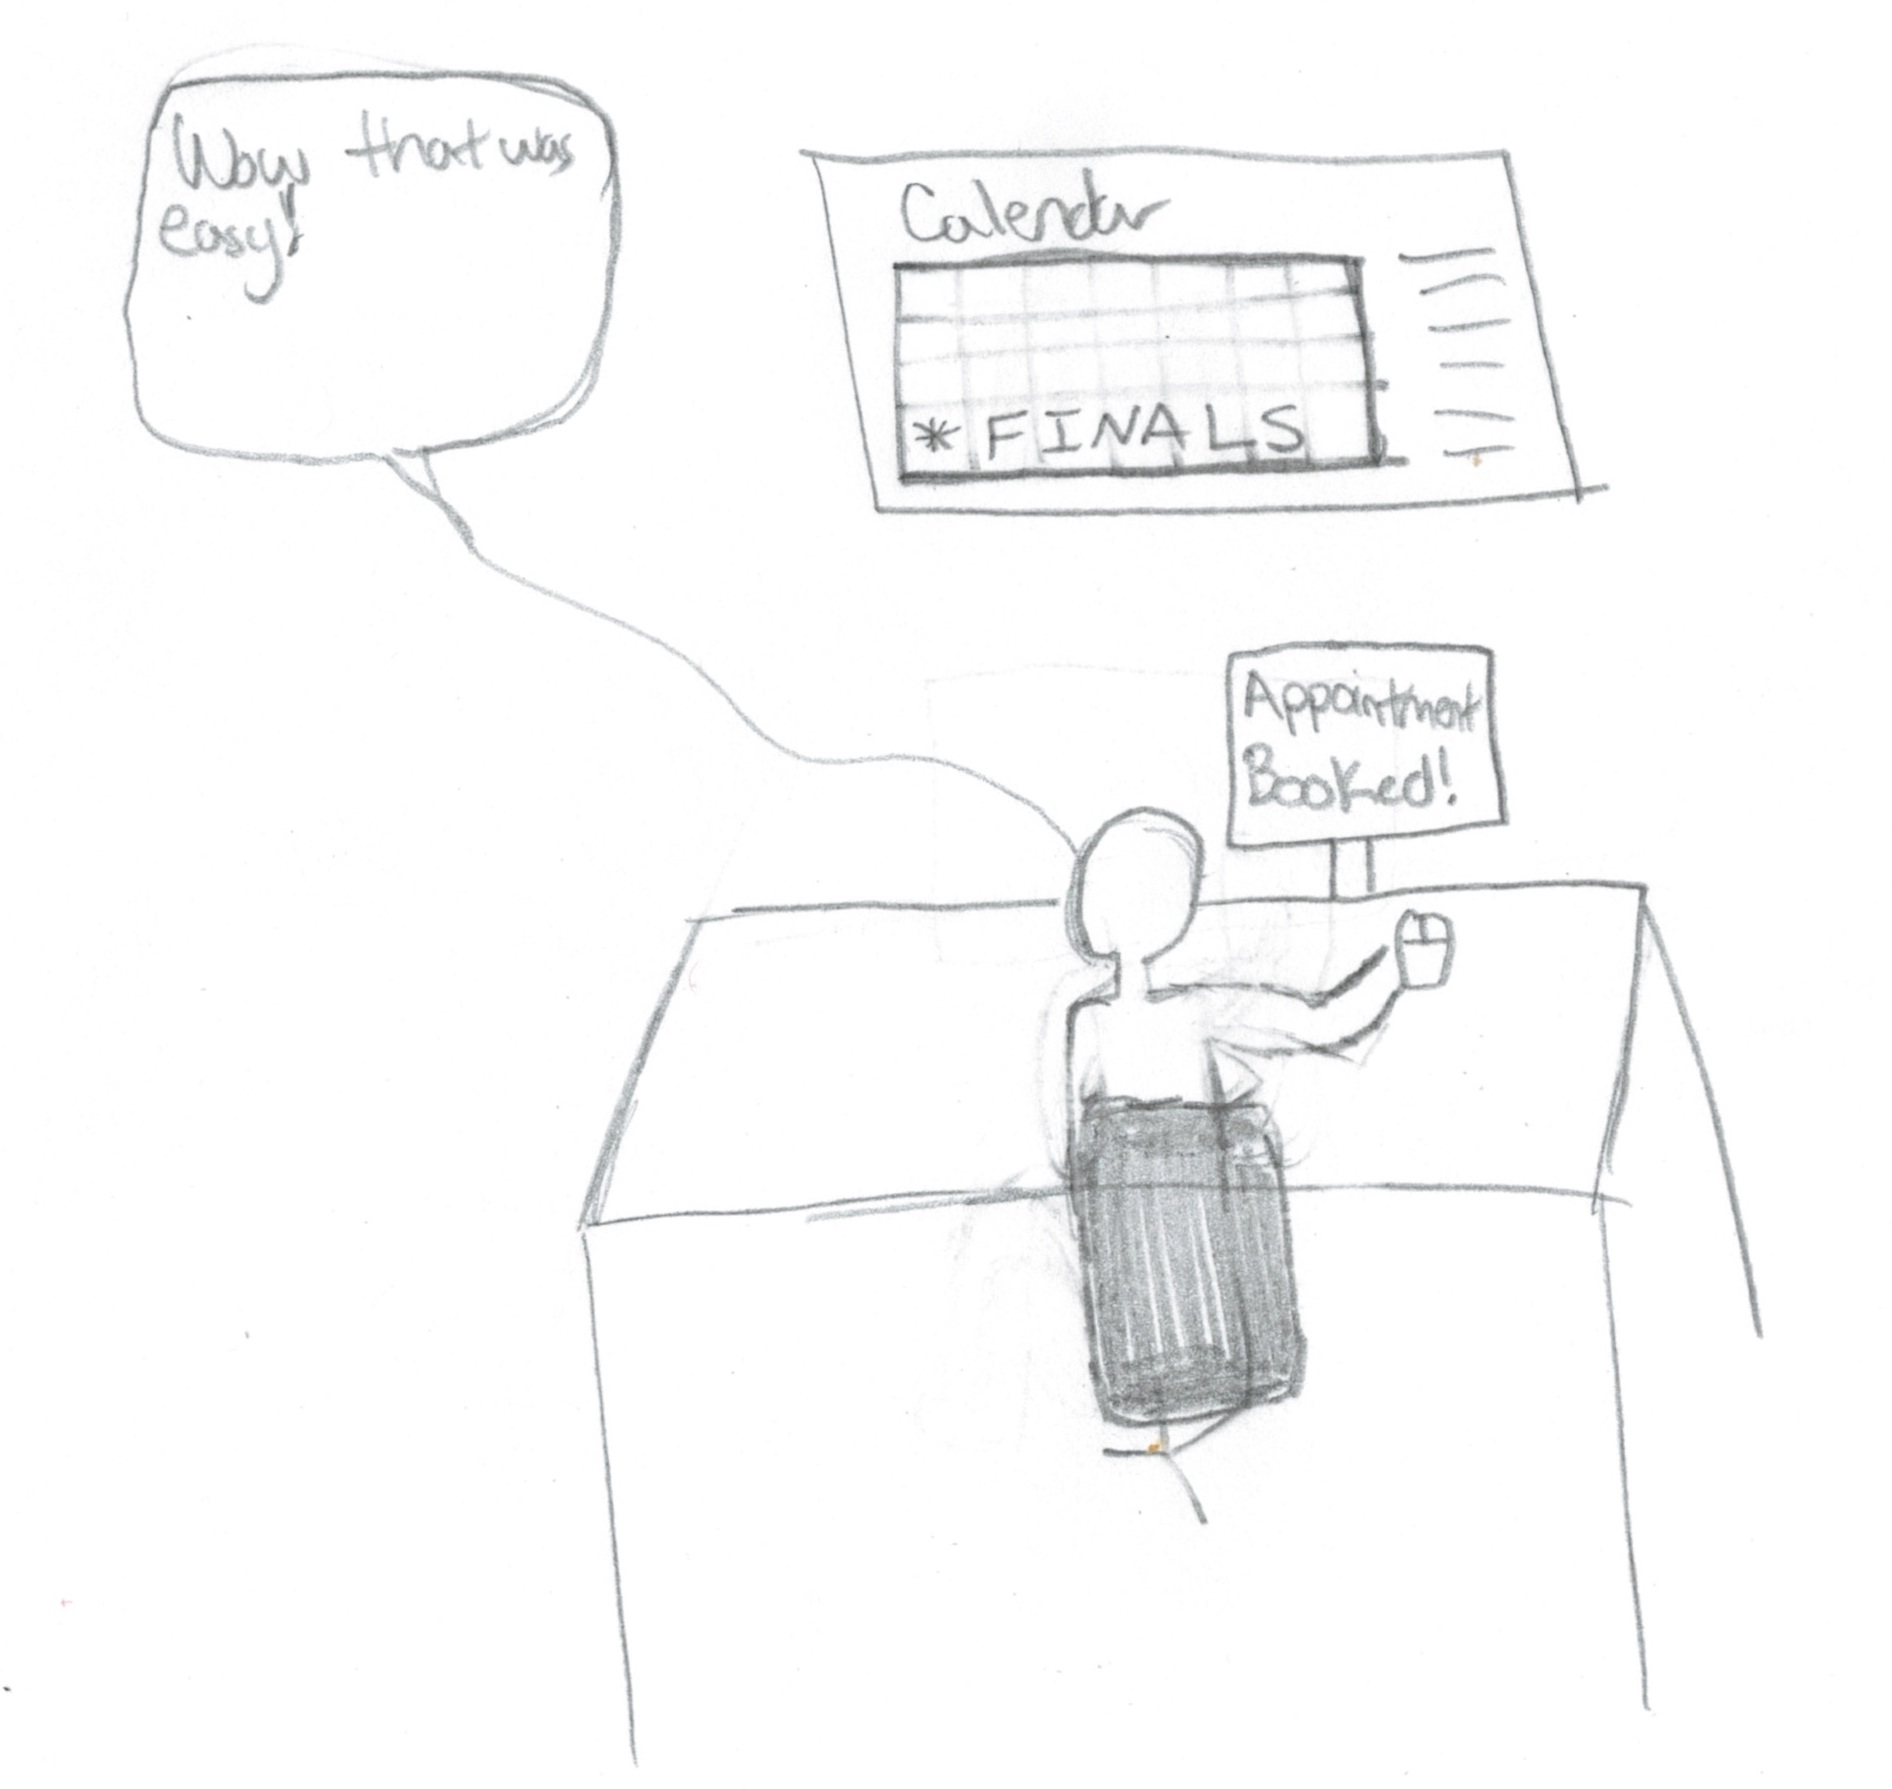 Wow that was
easy!
Calendar
* FINALS
Appointment
Booked!